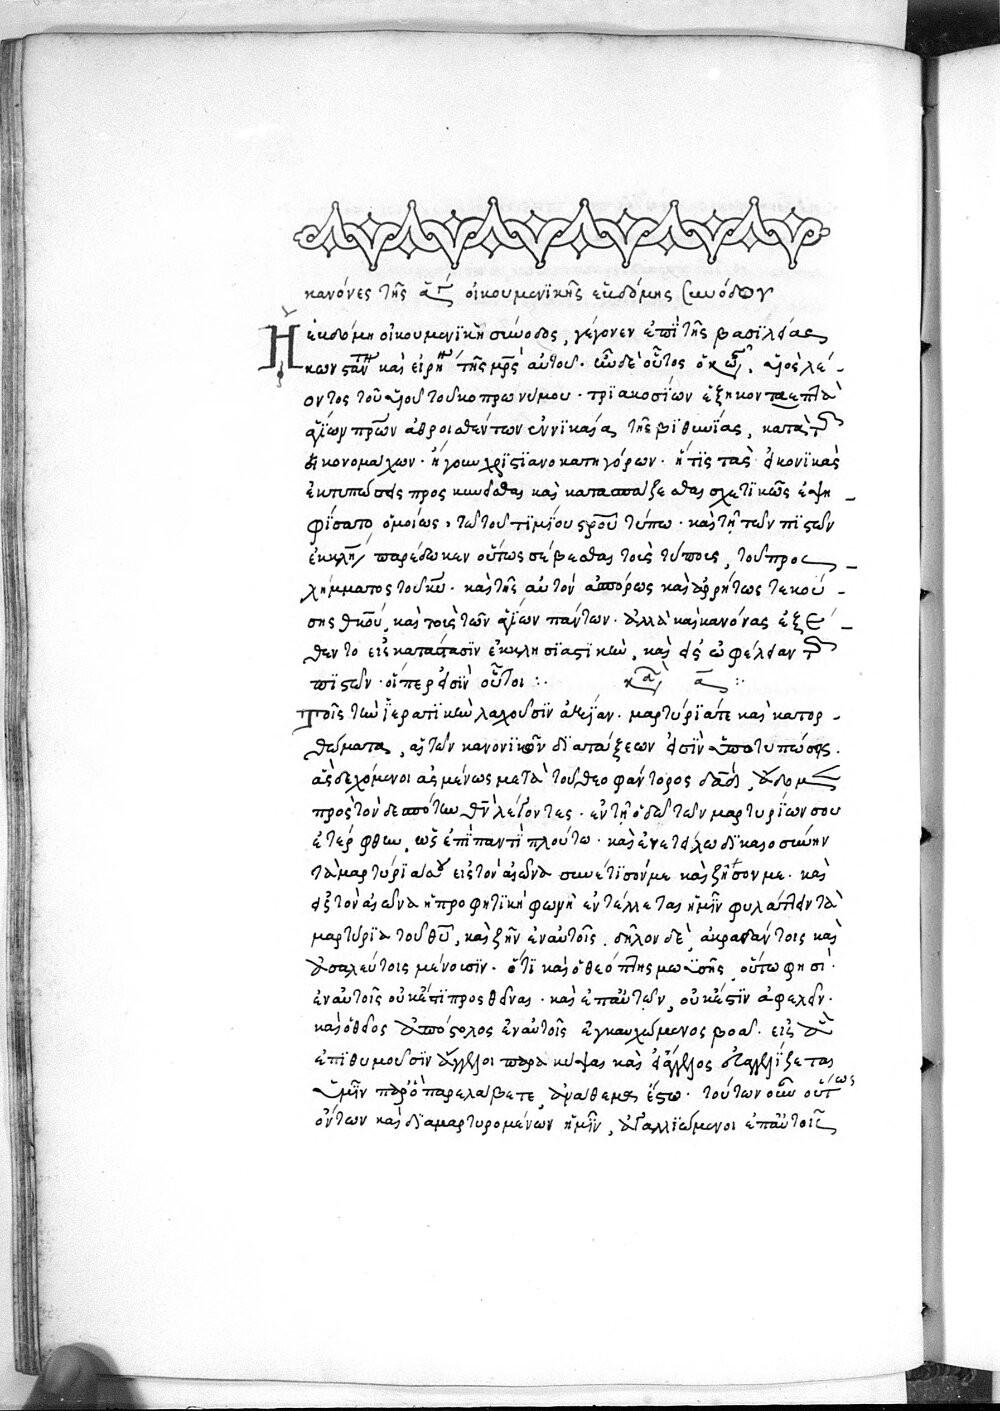 κανόνες τῆς ἁγί οἰκουμενικῆς ἑβδόμης συνόδου
Ἡ ἑβδόμη οἰκουμενϊκὴ σύνοδος, γέγονεν ἐπῒ τῆς βασϊλείας
κωνσταντ καὶ εἰρήνης τῆς μρς αὐτοῦ. ὧδε οὗτος ὁ υἱὸς λέ-
οντος τοῦ υἱοῦ τοῦ κοπρωνύμου. τρϊακοσίων ἑξήκοντα ἑπτὰ
ἁγίων πρων ἀθροισθέντων ἐν νικαία τῆς βϊθυνίας, κατὰ τῶν
εἰκονομάχων. ἤγουν χρϊστϊανοκατηγόρων. ἥτϊς τὰς εἰκονϊκὰς
ἐκτυπώσεις προσκυνεῖσθαι καὶ κατασπάζεσθαι σχετϊκῶς ἐψη-
φίσατο ὁμοίως, τῶ τοῦ τϊμίου σρου τύπω. καὶ τῆ τῶν πϊστῶν
ἐκκλη παρέδωκεν οὕτως σέβεσθαι τοῖς τύποις, τοῦ προσ-
λήμματος τοῦ κυ. καὶ τῆς αὐτὸν ἀσπόρως καὶ ἀρρήτως τεκού-
σης θκου, καὶ τοῖς τῶν ἁγίων πάντων. ἀλλὰ καὶ κανόνας ἐξέ-
θεντο εἰς κατάστασϊν ἐκκλησϊαστϊκῶν, καὶ εἰς ὠφέλειαν τῶν
πϊστῶν. οἵπερ εἰσϊν οὗτοι :. κα α :
Τοῖς τὴν ἱερατϊκὴν λαχοῦσϊν ἀξίαν. μαρτύρϊά τε καὶ κατορ-
θώματα, αἱ τῶν κανονϊκῶν δϊατάξεων εἰσϊν ὑποτυπώσεις.
ἃς δεχόμενοι ἀσμένως μετὰ τοῦ θεοφάντορος δαδ, ἄδομεν
πρὸς τὸν δεσπότην θν λέγοντες. ἐν τῆ ὁδῶ τῶν μαρτυρίων σου
ἐτέρφθην, ὡς ἐπῒ παντῒ πλούτω. καὶ ἐνετείλω δϊκαιοσύνην
τὰ μαρτύρϊά σου εἰς τὸν αἰῶνα συνέτϊσόν με καὶ ζήσομαι. καὶ
εἰ εἰς τὸν αἰῶνα ἡ προφητϊκὴ φωνὴ ἐντέλλεται ἡμῖν φυλάττειν τὰ
μαρτύρϊα τοῦ θυ, καὶ ζῆν ἐν αὐτοῖς, δῆλον δὲ, ἀκράδαντοις καὶ
ἀσαλεύτοις μένουσϊν. ὅτϊ καὶ ὁ θεόπτης μωϋσῆς, οὕτω φησί.
ἐν αὐτοῖς οὐκ ἔστϊ προσθεῖναι. καὶ ἐπ' αὐτῶν, οὐκ ἔστϊν ἀφελεῖν.
καὶ ὁ θεῖος ἀπόστολος ἐν αὐτοῖς ἐγκαυχώμενος βοᾶ. εἰς ἃ
ἐπϊθυμοῦσϊν ἄγγελοι παρακύψαι καὶ εἰ ἄγγελος εὐαγγελϊζεται
ὑμῖν παρ' ὃ παρελάβετε, ἀνάθεμα ἔστω. τούτων οὖν οὕτως
ὄντων καὶ δϊαμαρτυρομένων ἡμῖν, ἀγαλλϊώμενοι ἐπ' αὐτοῖς